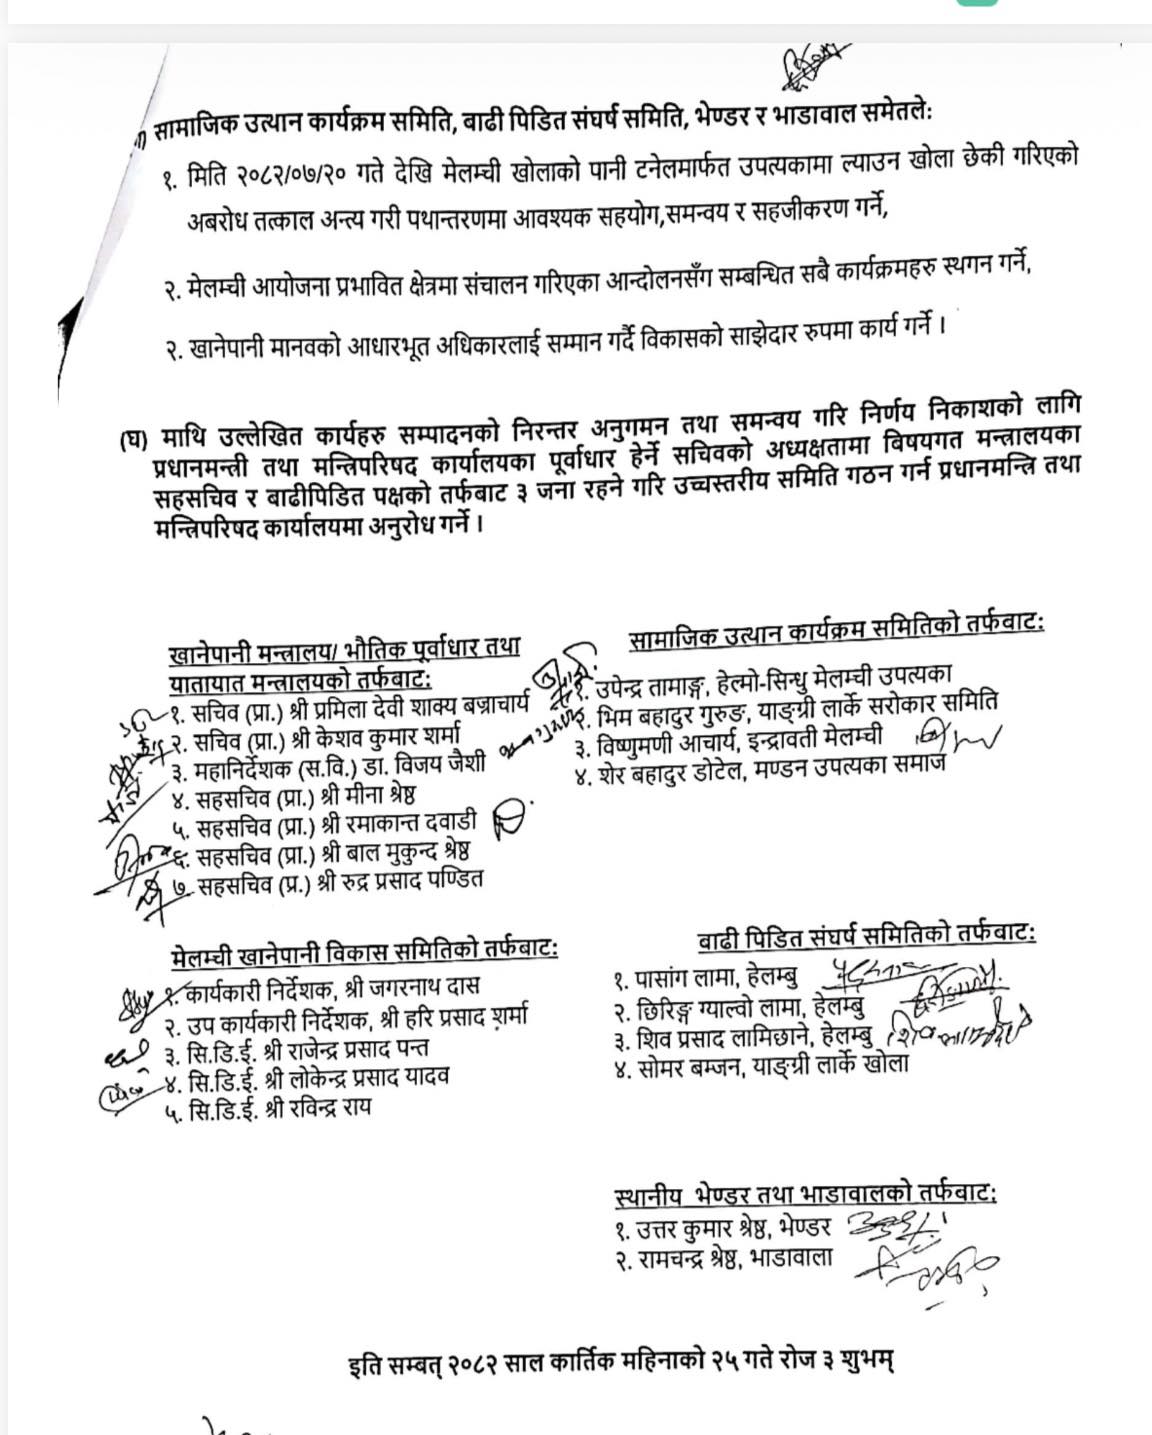 सामाजिक उत्थान कार्यक्रम समिति, बाढी पिडित संघर्ष समिति, भेण्डर र भाडावाल समेतले:
१. मिति २०८२/०७/२० गते देखि मेलम्ची खोलाको पानी टनेलमार्फत उपत्यकामा ल्याउन खोला छेकी गरिएको
अबरोध तत्काल अन्त्य गरी पथान्तरणमा आवश्यक सहयोग,समन्वय र सहजीकरण गर्ने,
२. मेलम्ची आयोजना प्रभावित क्षेत्रमा संचालन गरिएका आन्दोलनसँग सम्बन्धित सबै कार्यक्रमहरु स्थगन गर्ने,
२. खानेपानी मानवको आधारभूत अधिकारलाई सम्मान गर्दै विकासको साझेदार रुपमा कार्य गर्ने ।
(घ) माथि उल्लेखित कार्यहरु सम्पादनको निरन्तर अनुगमन तथा समन्वय गरि निर्णय निकाशको लागि
प्रधानमन्त्री तथा मन्त्रिपरिषद कार्यालयका पूर्वाधार हेर्ने सचिवको अध्यक्षतामा बिषयगत मन्त्रालयका
सहसचिव र बाढीपिडित पक्षको तर्फबाट ३ जना रहने गरि उच्चस्तरीय समिति गठन गर्न प्रधानमन्त्रि तथा
मन्त्रिपरिषद कार्यालयमा अनुरोध गर्ने ।
खानेपानी मन्त्रालय/ भौतिक पूर्वाधार तथा
यातायात मन्त्रालयको तर्फबाट:
१. सचिव (प्रा.) श्री प्रमिला देवी शाक्य बज्राचार्य
२. सचिव (प्रा.) श्री केशव कुमार शर्मा
३. महानिर्देशक (स.वि.) डा. विजय जैशी
४. सहसचिव (प्रा.) श्री मीना श्रेष्ठ
५. सहसचिव (प्रा.) श्री रमाकान्त दवाडी
६. सहसचिव (प्रा.) श्री बाल मुकुन्द श्रेष्ठ
७. सहसचिव (प्र.) श्री रुद्र प्रसाद पण्डित
सामाजिक उत्थान कार्यक्रम समितिको तर्फबाट:
१. उपेन्द्र तामाङ्ग, हेल्मो-सिन्धु मेलम्ची उपत्यका
२. भिम बहादुर गुरुङ, याङ्ग्री लार्के सरोकार समिति
३. विष्णुमणी आचार्य, इन्द्रावती मेलम्ची
४. शेर बहादुर डोटेल, मण्डन उपत्यका समाज
मेलम्ची खानेपानी विकास समितिको तर्फबाट:
१. कार्यकारी निर्देशक, श्री जगरनाथ दास
२. उप कार्यकारी निर्देशक, श्री हरि प्रसाद शर्मा
३. सि.डि.ई. श्री राजेन्द्र प्रसाद पन्त
४. सि.डि.ई. श्री लोकेन्द्र प्रसाद यादव
५. सि.डि.ई. श्री रविन्द्र राय
बाढी पिडित संघर्ष समितिको तर्फबाट:
१. पासांग लामा, हेलम्बु
२. छिरिङ्ग ग्याल्वो लामा, हेलम्बु
३. शिव प्रसाद लामिछाने, हेलम्बु
४. सोमर बम्जन, याङ्ग्री लार्के खोला
स्थानीय भेण्डर तथा भाडावालको तर्फबाट:
१. उत्तर कुमार श्रेष्ठ, भेण्डर
२. रामचन्द्र श्रेष्ठ, भाडावाला
इति सम्बत् २०८२ साल कार्तिक महिनाको २५ गते रोज ३ शुभम्